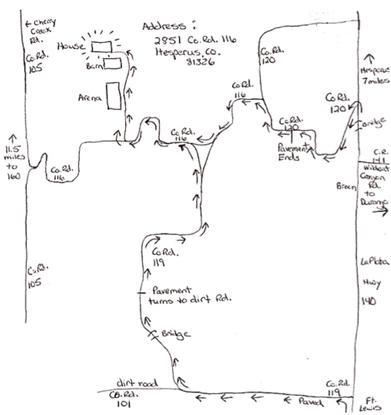 ← Cherry
Creek
Rd.
Co.Rd.
105
House
Barn
Arena
Address :
2851 Co.Rd. 116
Hesperus, Co.
81326
Co.Rd.
120
Hesperus
7 miles
Co.Rd.
116
Co.Rd.
120
Bridge
Co.Rd.
120
Pavement
Ends
11.5
miles
to
160
Co.Rd.
116
Co.Rd.
116
C.R.
141
Wildcat
Canyon
Rd.
to
Durango
Breen
Co.Rd.
105
Co.Rd.
119
Pavement
turns to dirt Rd.
Bridge
La Plata
Hwy
140
dirt road
Co.Rd.
101
Co.Rd.
119
Paved
Ft.
Lewis